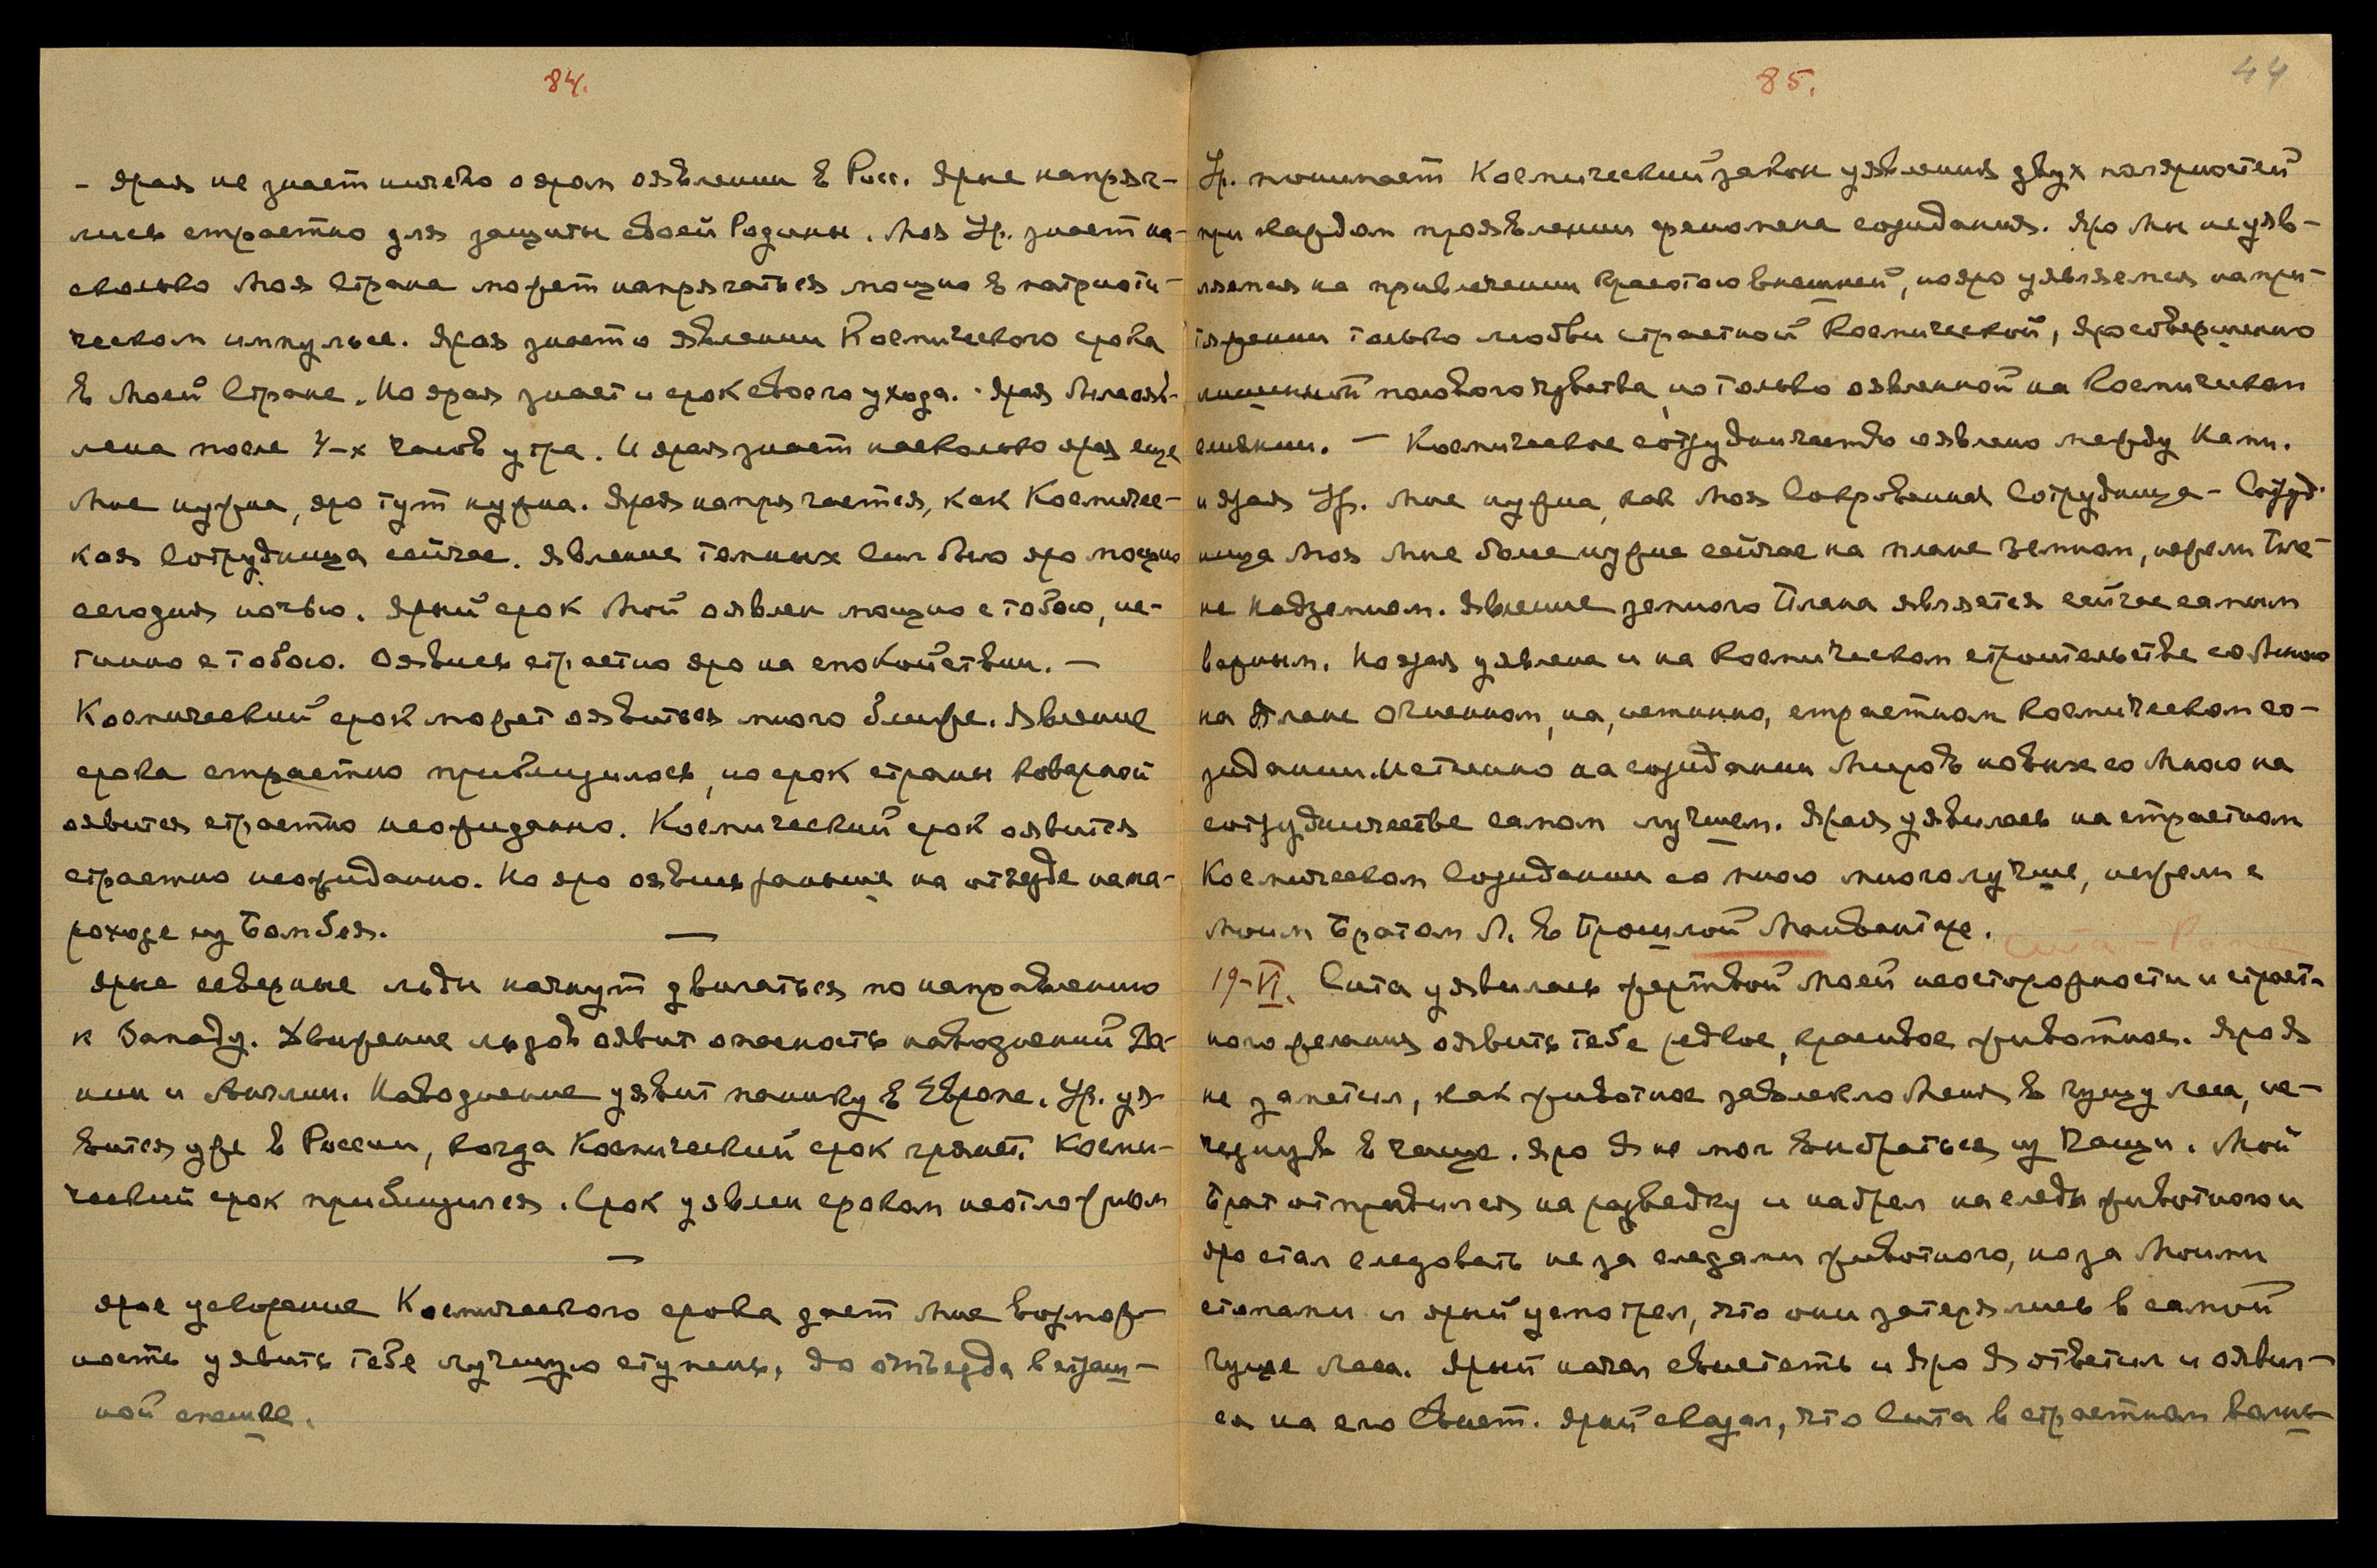 84.
- Ярая не знает ничего о яром оявлении в Росс. Ярые напряг-
лись страстно для защиты своей Родины. Моя Ур. знает на-
сколько Моя Страна может напрягаться мощно в патриоти-
ческом импульсе. Ярая знает о явлении Космического срока
в Моей Стране. Но ярая знает и срок своего ухода. Ярая Мне ояв-
лена после 4-х часов утра. И ярая знает насколько ярая еще
Мне нужна, яро тут нужна. Ярая напрягается, как Космичес-
кая Сотрудница сейчас. Явление темных Сил было яро мощно
сегодня ночью. Ярый срок Мой оявлен мощно с тобою, ис-
тинно с тобою. Оявись страстно яро на спокойствии. —
Космический срок может оявиться много ближе. Явление
срока страстно приблизилось, но срок страны коварной
оявится страстно неожиданно. Космический срок оявится
страстно неожиданно. Но яро оявись раньше на отъезде на па-
роходе из Бомбея.
—
Ярые северные льды начнут двигаться по направлению
к Западу. Движение льдов оявит опасность наводнений Да-
нии и Англии. Наводнение уявит панику в Европе. Ур. уя-
вится уже в России, когда Космический срок грянет. Косми-
ческий срок приблизился. Срок уявлен сроком неотложным
—
Ярое ускорение Космического срока дает Мне возмож-
ность уявить тебе лучшую ступень, до отъезда в страш-
ной спешке.
85.
44
Ур. понимает Космический закон уявления двух полярностей
при каждом проявлении феномена созидания. Яро Мы не уяв-
ляемся на привлечении красотою внешней, но яро уявляемся на при-
тяжении только любви страстной Космической, яро совершенно
лишенной полового чувства, но только оявленной на Космическом
слиянии. — Космическое сотрудничество оявлено между Нами.
и ярая Ур. Мне нужна, как Моя Сокровенная Сотрудница - Сотруд-
ница Моя Мне более нужна сейчас на плане земном, нежели Пла-
не Надземном. Явление земного Плана является сейчас самым
важным. Но ярая уявлена и на Космическом строительстве со Мною
на Плане Огненном, на, истинно, страстном Космическом со-
зидании. Истинно на созидании Миров новых со Мною на
сотрудничестве самом лучшем. Ярая уявилась на страстном
Космическом Созидании со мною много лучше, нежели с
Моим Братом М. в Прошлой Манвантаре.
19-VI. Сита уявилась жертвой Моей неосторожности и страст-
ного желания оявить тебе редкое, красивое животное. Яро Я
не заметил, как животное завлекло Меня в гущу леса, ис-
чезнув в чаще. Яро Я не мог выбраться из Чащи. Мой
Брат отправился на разведку и набрел на следы животного и
яро стал следовать не за следами животного, но за Моими
стопами и ярый усмотрел, что они затерялись в самой
гуще леса. Ярый начал свистеть и Яро Я ответил и оявил-
ся на его Свист. Ярый сказал, что Сита в страстном